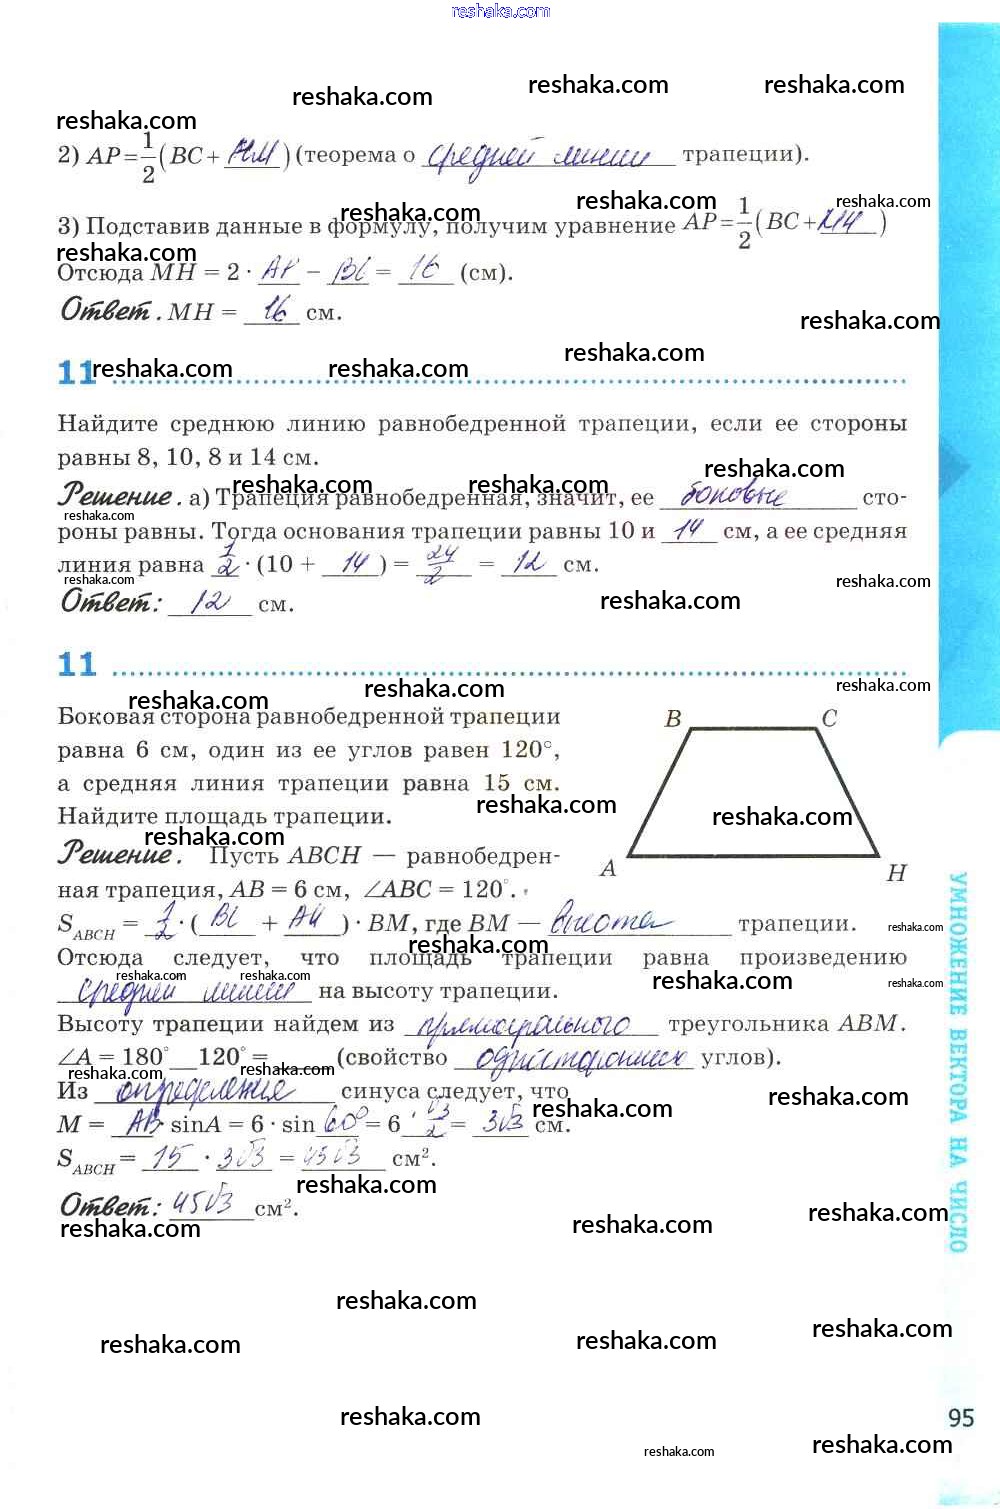 reshaka.com
reshaka.com reshaka.com
reshaka.com
reshaka.com
2) AP = 1/2 (BC + НМ) (теорема о средней линии трапеции).
reshaka.com reshaka.com reshaka.com
3) Подставив данные в формулу, получим уравнение AP = 1/2 (BC + МН)
reshaka.com
Отсюда MH = 2 · AP – BC = 16 (см).
Ответ. MH = 16 см.
reshaka.com
11 reshaka.com reshaka.com reshaka.com
Найдите среднюю линию равнобедренной трапеции, если ее стороны
равны 8, 10, 8 и 14 см.
reshaka.com reshaka.com reshaka.com
Решение. а) Трапеция равнобедренная, значит, ее боковые сто-
reshaka.com
роны равны. Тогда основания трапеции равны 10 и 14 см, а ее средняя
линия равна 1/2 · (10 + 14) = 24/2 = 12 см.
reshaka.com reshaka.com
Ответ: 12 см.
reshaka.com
11
reshaka.com reshaka.com reshaka.com
Боковая сторона равнобедренной трапеции
равна 6 см, один из ее углов равен 120°,
а средняя линия трапеции равна 15 см.
Найдите площадь трапеции.
B C
A H
reshaka.com reshaka.com reshaka.com
Решение. Пусть ABCH — равнобедрен-
ная трапеция, AB = 6 см, ∠ABC = 120°.
S ABCH = 1/2 · (BC + AH) · BM, где BM — высота трапеции.
reshaka.com reshaka.com
Отсюда следует, что площадь трапеции равна произведению
reshaka.com reshaka.com reshaka.com reshaka.com
средней линии на высоту трапеции.
Высоту трапеции найдем из прямоугольного треугольника ABM.
∠A = 180° 120° = (свойство односторонних углов).
reshaka.com reshaka.com
Из определения синуса следует, что
reshaka.com reshaka.com
M = AB · sinA = 6 · sin 60° = 6 · √3/2 = 3√3 см.
S ABCH = 15 · 3√3 = 45√3 см².
reshaka.com
Ответ: 45√3 см².
reshaka.com reshaka.com reshaka.com
reshaka.com
reshaka.com reshaka.com reshaka.com
reshaka.com
reshaka.com reshaka.com
УМНОЖЕНИЕ ВЕКТОРА НА ЧИСЛО
95